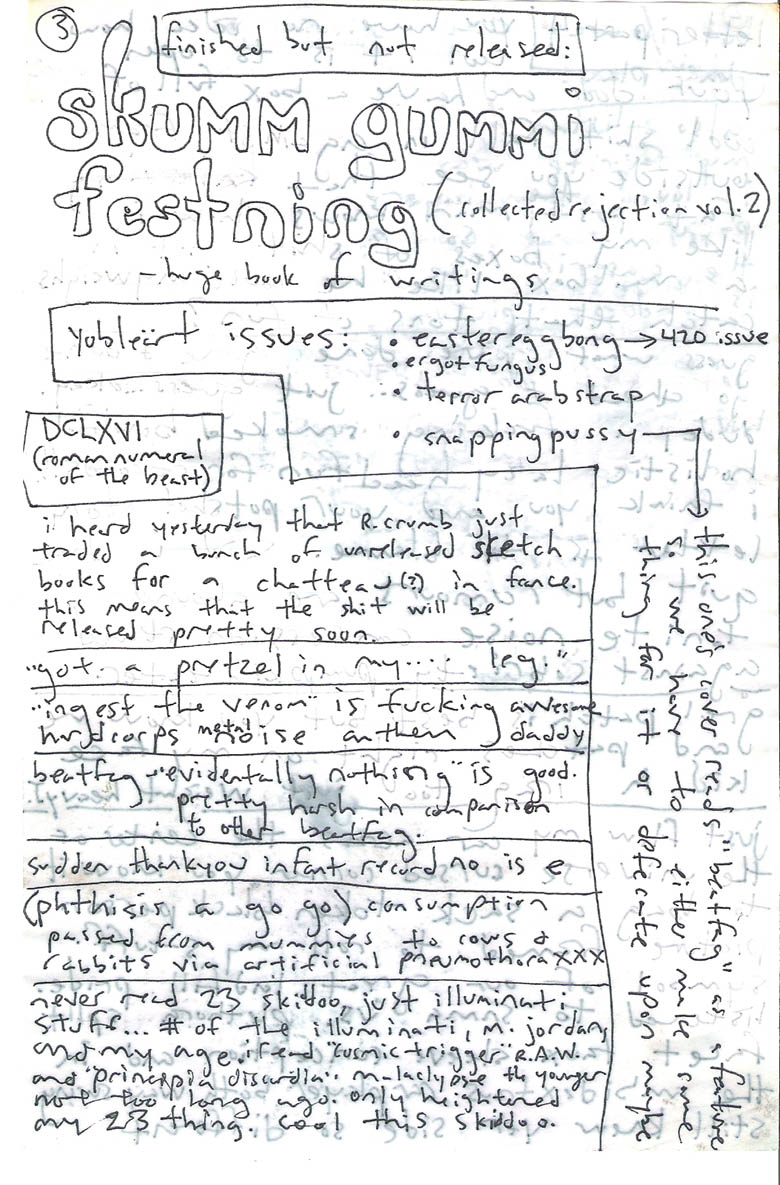 3
finished but not released:
skumm gummi
festning (collected rejection vol. 2)
- huge book of writings.
yobleärt issues: • easter egg bong → 420 issue
• ergot fungus
• terror arab strap
• snapping pussy
DCLXVI
(roman numeral
of the beast)
i heard yesterday that R. crumb just
traded a bunch of unreleased sketch
books for a chatteau (?) in fance.
this means that the shit will be
released pretty soon.
"got a pretzel in my.... leg."
"ingest the venom" is fucking awesome
hardcorps metal noise anthem daddy
beatfag "evidentally nothing" is good.
pretty harsh in comparison
to other beatfag.
sudden thankyou infant. record no is e
(phthisis a go go) consumption
passed from mummies to cows &
rabbits via artificial pneumothoraxxx
never read 23 skiddoo, just illuminati
stuff... # of the illuminati, m. jordan,
and my age. i read "cosmic trigger" R.A.W.
and "principia discordia" malaclypse the younger
not too long ago. only heightened
my 23 thing. cool this skiddoo.
this one's cover reads "beatfag" as a feature
so we have to either make some
thing for it or defecate upon maybe